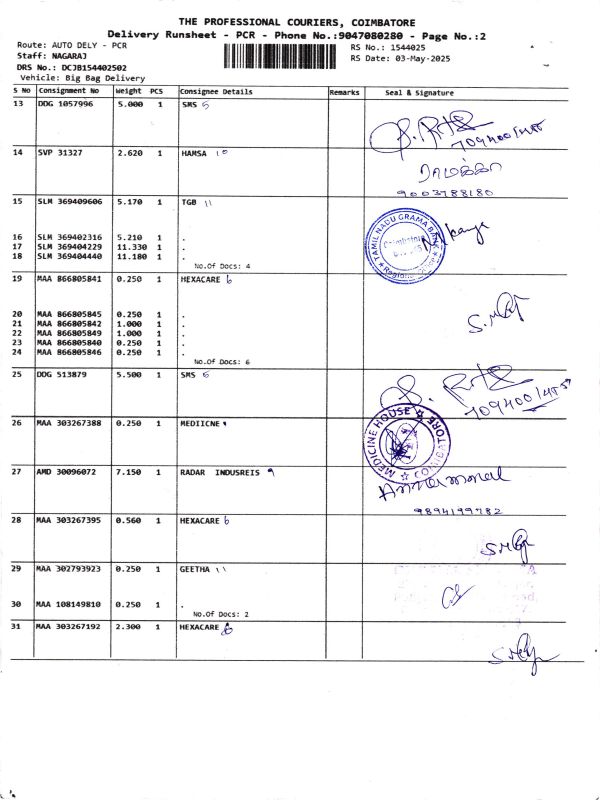 THE PROFESSIONAL COURIERS, COIMBATORE
Delivery Runsheet - PCR - Phone No.:9047080280 - Page No.:2
Route: AUTO DELY - PCR
RS No.: 1544025
Staff: NAGARAJ
RS Date: 03-May-2025
DRS No.: DCJB154402502
Vehicle: Big Bag Delivery
S No Consignment No Weight PCS Consignee Details Remarks Seal & Signature
13 DDG 1057996 5.000 1 SMS 5
14 SVP 31327 2.620 1 HAMSA 10
ராமக்கா
9003788180
15 SLM 369409606 5.170 1 TGB 11
TAMIL NADU GRAMA BANK
Coimbatore
Regional Office
16 SLM 369402316 5.210 1 .
17 SLM 369404229 11.330 1 .
18 SLM 369404440 11.180 1 .
No.Of Docs: 4
19 MAA 866805841 0.250 1 HEXACARE 6
20 MAA 866805845 0.250 1 .
21 MAA 866805842 1.000 1 .
22 MAA 866805849 1.000 1 .
23 MAA 866805840 0.250 1 .
24 MAA 866805846 0.250 1 .
No.Of Docs: 6
25 DDG 513879 5.500 1 SMS 5
26 MAA 303267388 0.250 1 MEDIICNE
MEDICINE HOUSE
COIMBATORE
27 AMD 30096072 7.150 1 RADAR INDUSREIS 9
9894199782
28 MAA 303267395 0.560 1 HEXACARE 6
29 MAA 302793923 0.250 1 GEETHA 11
30 MAA 108149810 0.250 1 .
No.Of Docs: 2
31 MAA 303267192 2.300 1 HEXACARE 6